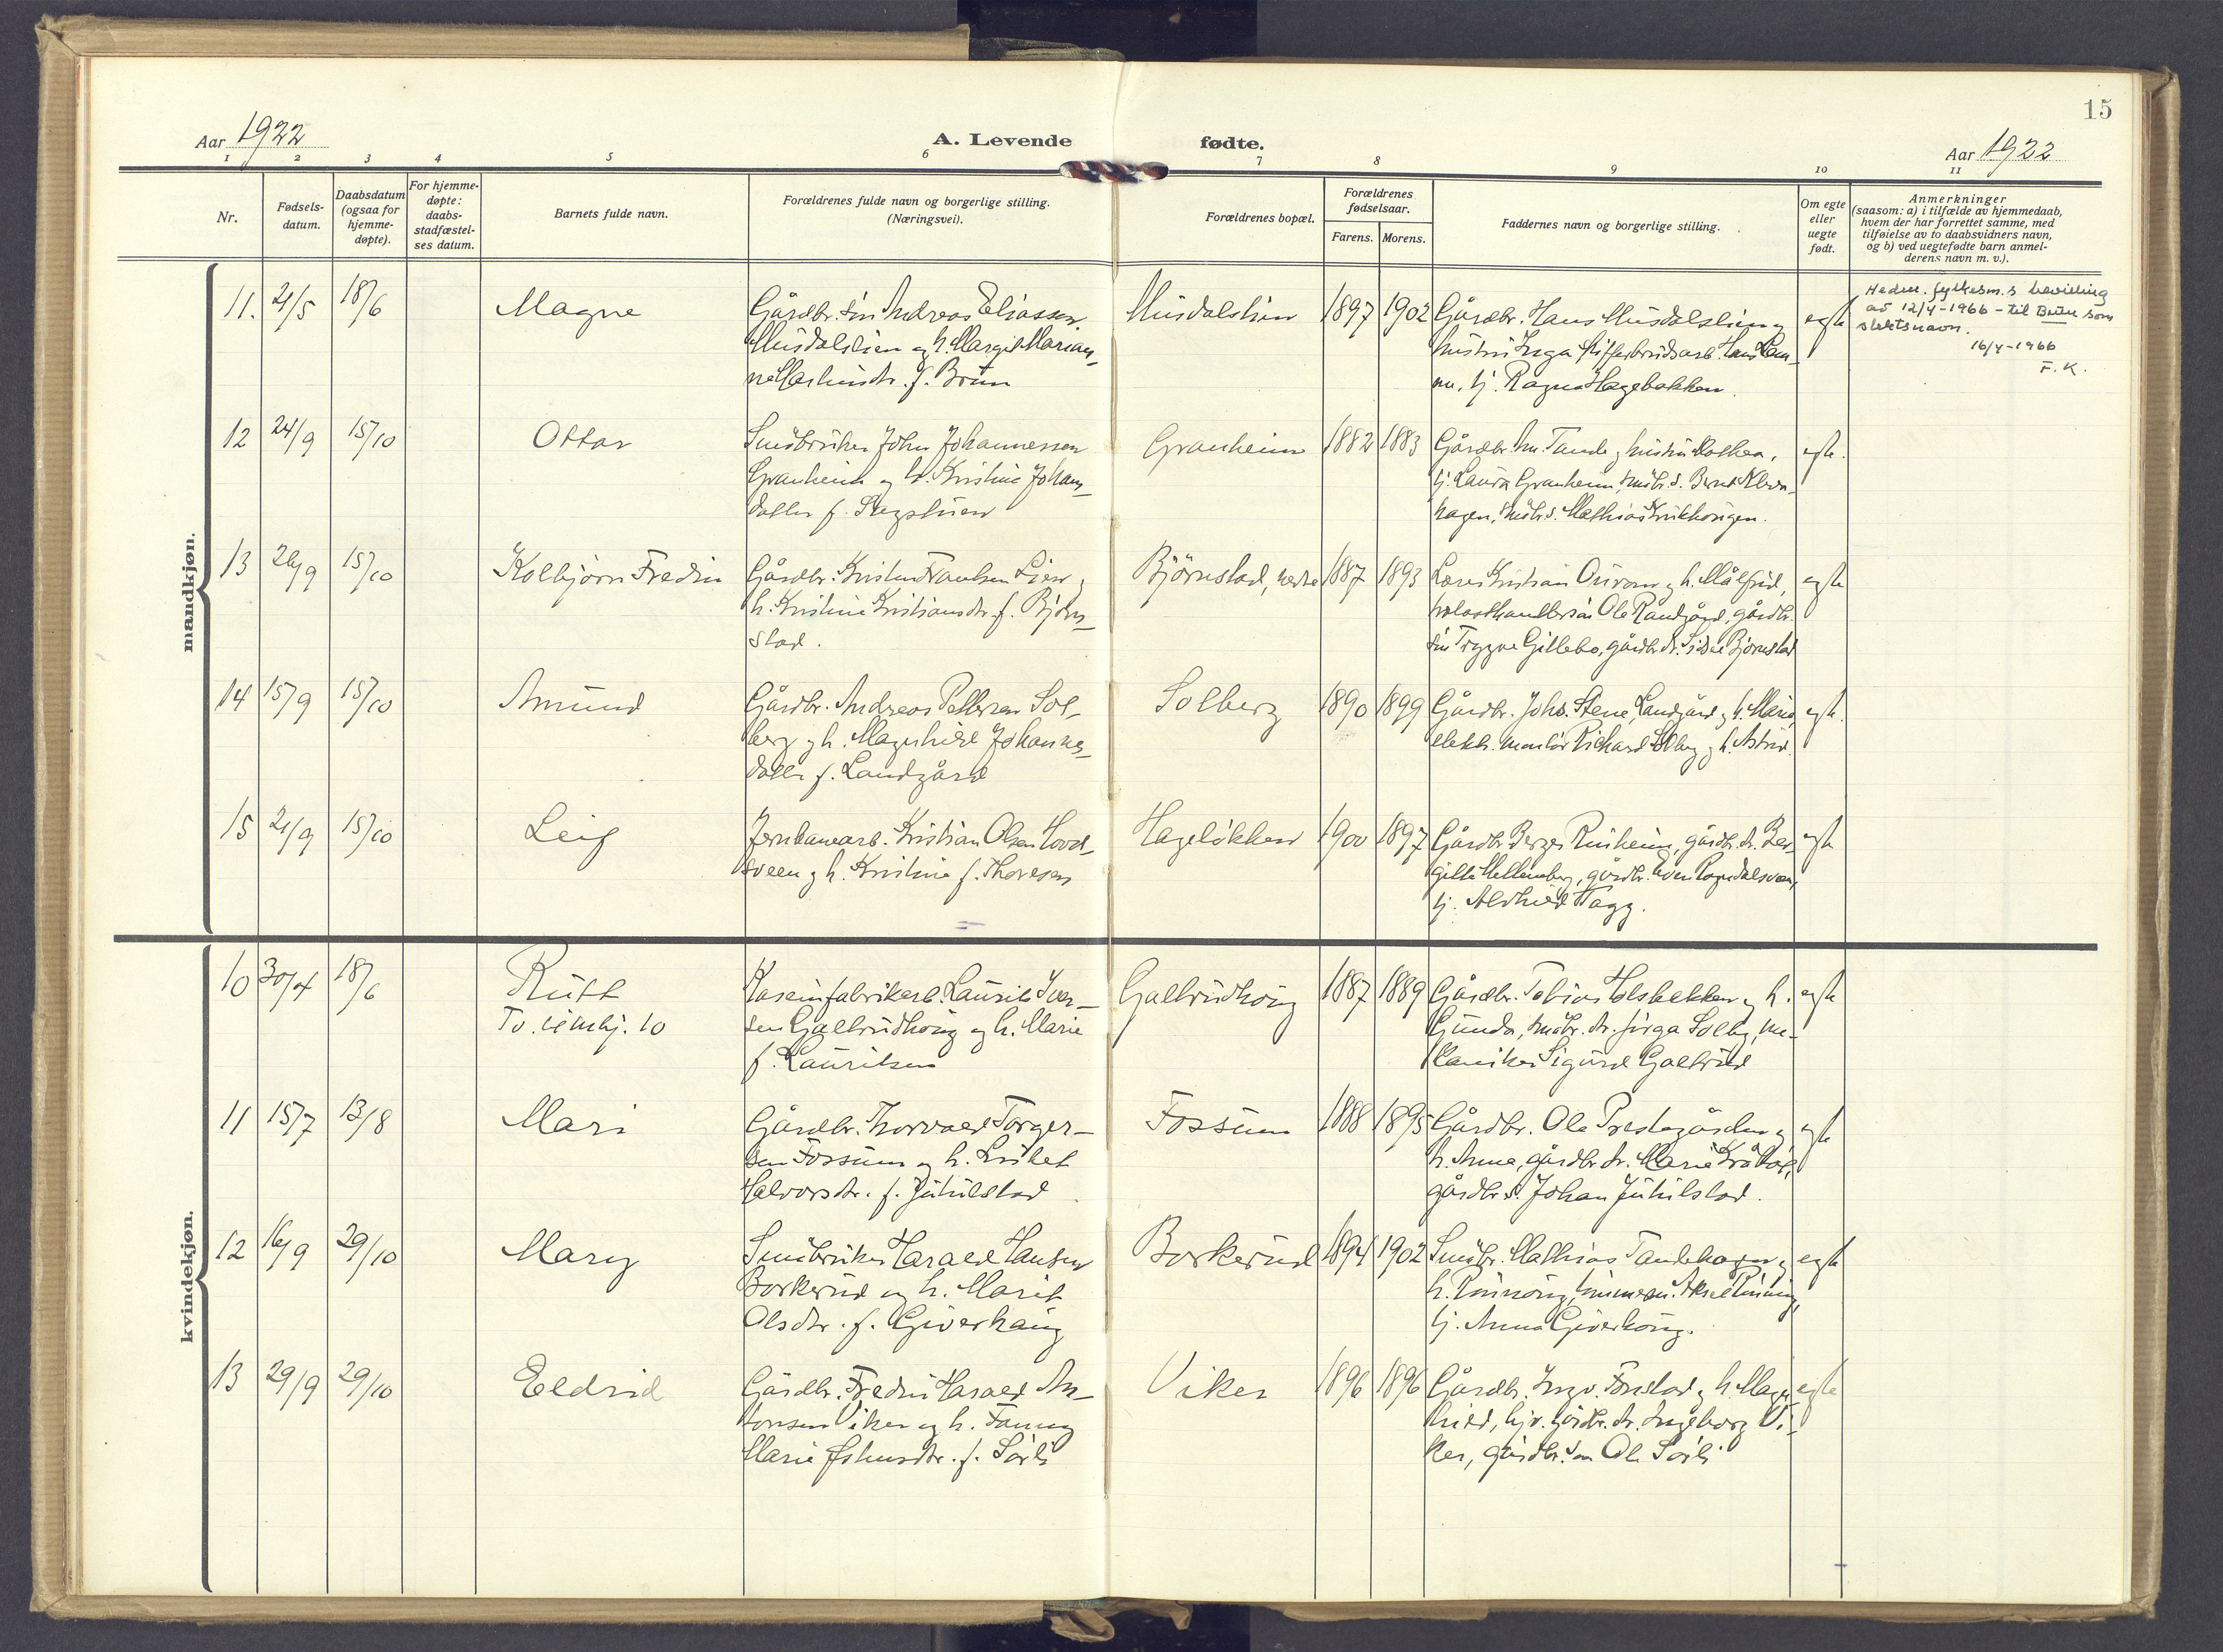 15
Aar 1922
A. Levende fødte.
Aar 1922
1 2 3 4 5 6 7 8 9 10 11
Nr.
Fødsels-
datum.
Daabsdatum
(ogsaa for
hjemme-
døpte).
For hjemme-
døpte:
daabs-
stadfæstel-
ses datum.
Barnets fulde navn.
Forældrenes fulde navn og borgerlige stilling.
(Næringsvei).
Forældrenes bopæl.
Forældrenes
fødselsaar.
Farens. Morens.
Faddernes navn og borgerlige stilling.
Om egte
eller
uegte
født.
Anmerkninger
(saasom: a) i tilfælde av hjemmedaab,
hvem der har forrettet samme, med
tilføielse av to daabsvidners navn,
og b) ved uegtefødte barn anmel-
derens navn m. v.).
mandkjøn.
11. 21/5 18/6
Magne
Gårdbr. sön Andreas Eliassen
Musdalslien og h. Margit Marian-
ne f. Brun
Musdalslien
1897 1902
Gårdbr. Hans Musdalslien og
hustru Inga Hans
tj. Ragna Hagebakken.
egte
Hedm. fylkesm.s bevilling
av 12/4-1966 - til Brun som
slektsnavn.
16/4-1966
F. K.
12 24/9 15/10
Ottar
Småbruker John Johannessen
Granheim og h. Kristine Johans-
datter f. Sagstuen
Granheim
1882 1883
Gårdbr. Tande og hustru
tj. Laura Granheim, småbr. s. Bernt
hagen, småbr. s. Mathias
egte.
13 26/9 15/10
Kolbjörn Fredrin
Gårdbr. Kristen Frantsen Lien og
h. Kristine Kristiansdtr. f. Björn-
stad.
Björnstad, nedre
1887 1893
Lærer Kristian og h. Målfrid,
Ole Randgård, gårdbr.
sön Trygve Gillebo, gårdbr. dr. Björnstad
egte
14 15/9 15/10
Amund
Gårdbr. Andreas Pettersen Sol-
berg og h. Magnhild Johannes-
datter f. Landgård
Solberg
1890 1899
Gårdbr. Johs. Stene, Landgård og h. Marie,
elektr. montör Richard Solberg og h. Astrid.
egte.
15 21/9 15/10
Leif
Jernbanearb. Kristian Olsen Hovd-
sveen og h. Kristine f. Thoresen
Hagelökken
1900 1897
Gårdbr. Berger Rusheim, gårdbr. dr. Ber-
gitte
tj. Alvhild Tagg.
egte
kvindekjøn.
10 30/4 18/6
Rutt
Kaseinfabrikarb. Laurits Iver-
sen Galtrudhaug og h. Marie
f. Lauritsen
Galtrudhaug
1887 1889
Gårdbr. Tobias Holsbekken og h.
Gunda, småbr. dr. Solberg, me-
kaniker Sigurd Galtrud
egte
11 15/7 13/8
Mari
Gårdbr. Thorvald Torger-
sen Fossum og h. Lisbet
Halvorsdtr. f. Jutulstad
Fossum
1888 1895
Gårdbr. Ole Prestegården og
h. Anna, gårdbr. dr. Marie
gårdbr. s. Johan Jutulstad.
egte
12 16/9 29/10
Mary
Småbruker Harald Hansen
Borkerud og h. Marit
Olsdtr. f. Giverhaug
Borkerud
1894 1902
Småbr. Mathias Tandehagen og
h. Rönnaug, tömmerm. Aksel
tj. Anna Giverhaug.
egte
13 29/9 29/10
Eldrid
Gårdbr. Fredrin Harald An-
tonsen Viker og h. Fanny
Marie f. Sörli
Viker
1896 1896
Gårdbr. Ingv. Fonstad og h. Magn-
hild, hjv. gårdbr. dr. Ingeborg Vi-
ker, gårdbr. sön Ole Sörli
egte